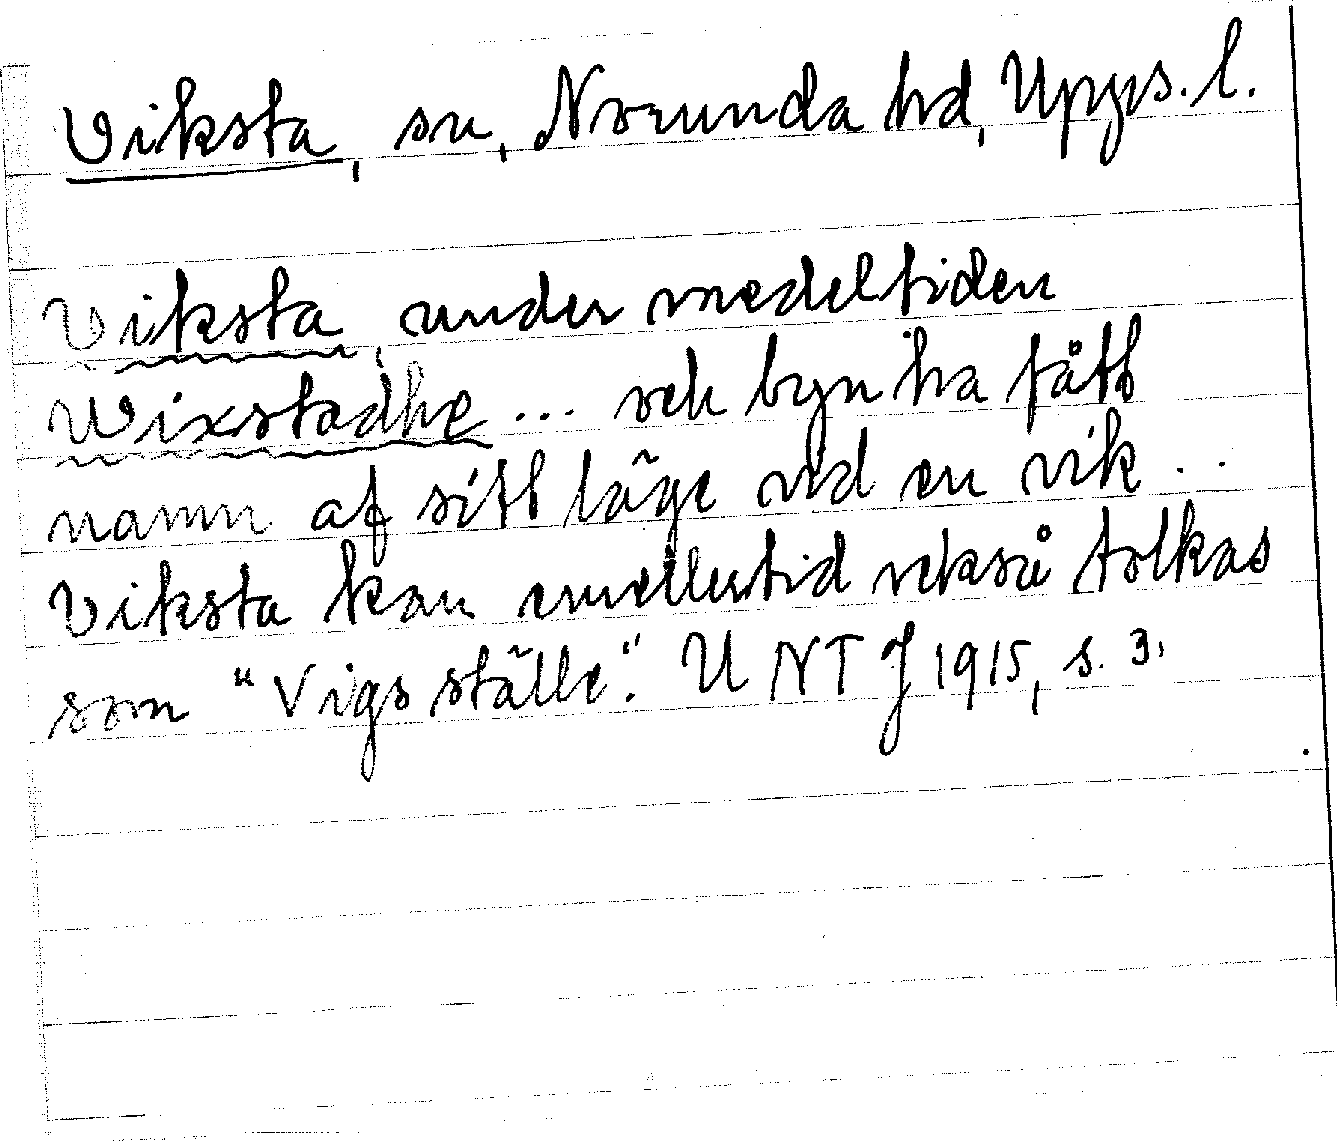 Viksta, sn, Norunda hd, Upps. l.
Viksta, under medeltiden
Wixstadhe ... och byn ha fått
namn af sitt läge vid en vik ...
Viksta kan emellertid också tolkas
som "Vigs ställe". U NT J 1915, s. 3.